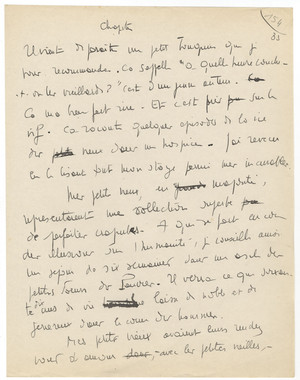 Chapitre
134
33
Il vient de paraît un petit bouquin que je
vous recommande. Ca s'appell "A quell heure couch-
t-on les vieillards?" c'est d'un jeune auteur.
Ca m'a bien fait rire. Et c'est pris sur le
vif. Ca raconte quelques episodes de la vie
des vieux dans un hospice. J'ai revecu
en le lisant tout mon stage parmi mes incurables.
Mes petits vieux, en majorité,
représentaient une collection
de parfaites crapules. A qui se fait encore
des illusions sur l'humanité, je conseille ainsi
un sejour de six semaines dans un asile de
petites soeurs des Pauvres. Il verra ce que soixante
dix ans de vie laisse de noble et de
genereux dans le coeur des hommes.
Mes petits vieux avaient leurs rendez
vous d'amour avec les petites vieilles -